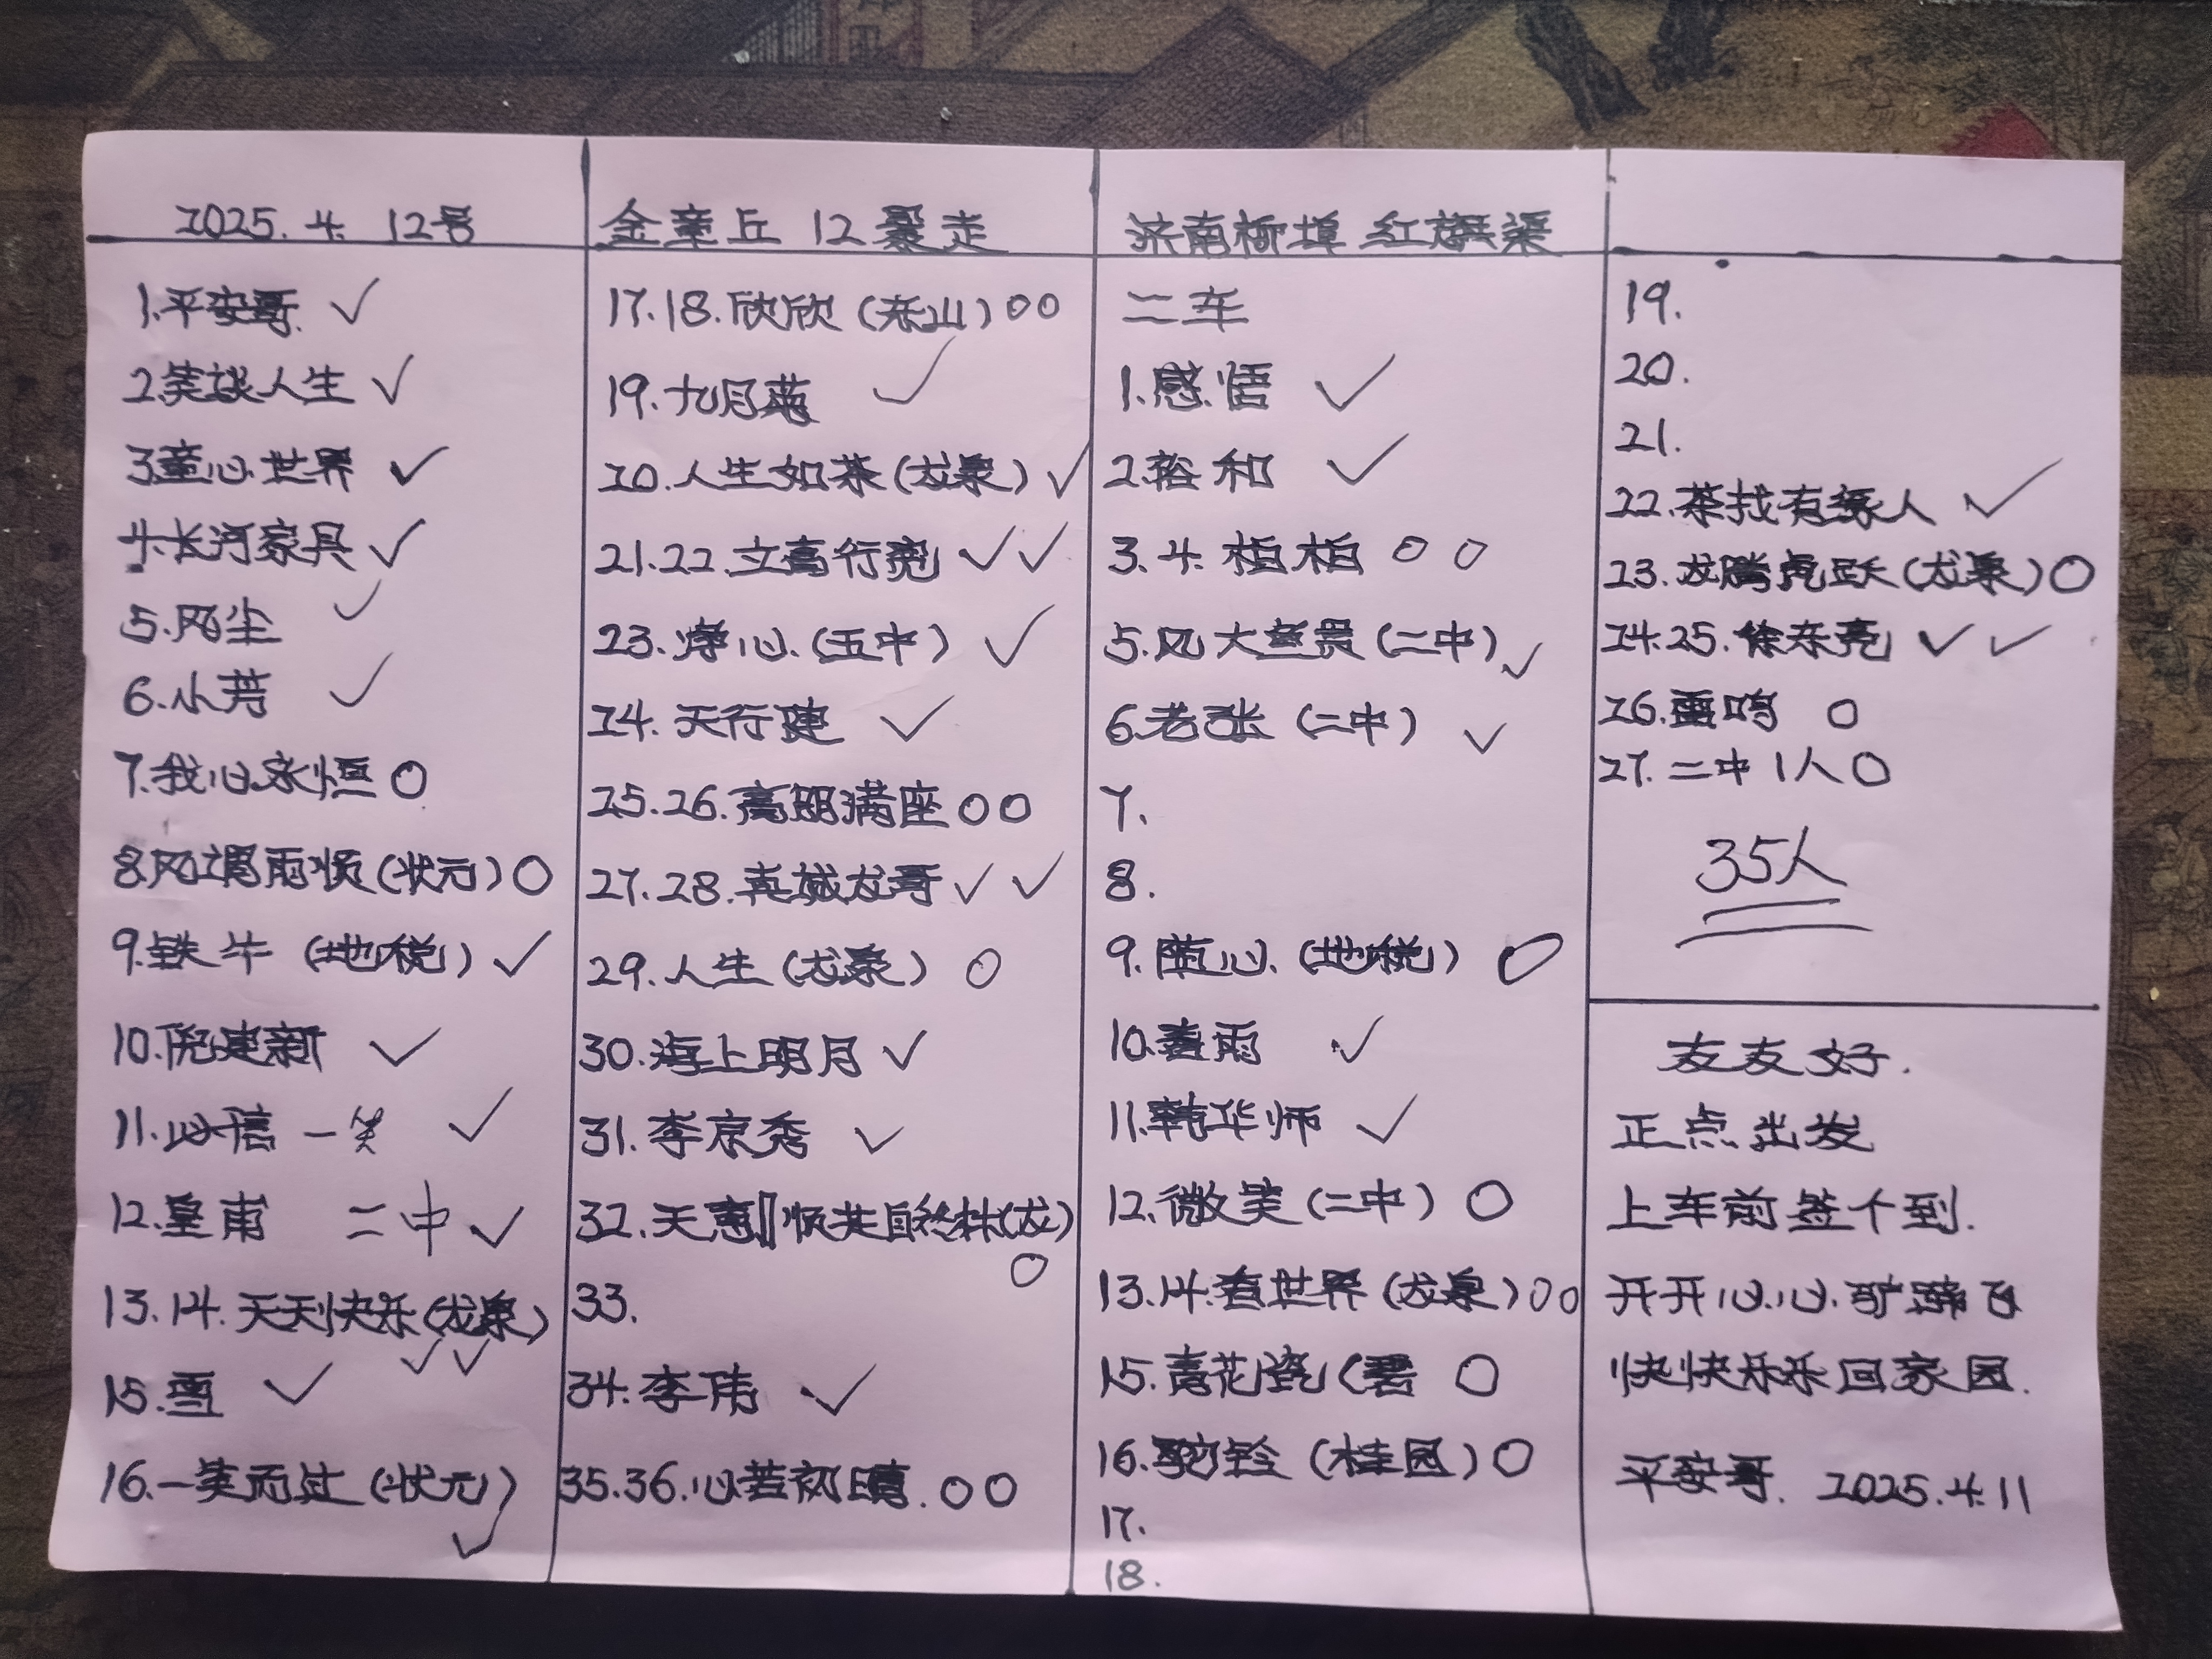 2025.4.12号
1.平安哥 ✓
2.笑谈人生 ✓
3.童心世界 ✓
4.长河家具 ✓
5.风尘 ✓
6.小芳 ✓
7.我心永恒 ○
8.风调雨顺(状元) ○
9.铁牛 (地税) ✓
10.倪建新 ✓
11. 一笑 ✓
12.皇甫 二中 ✓
13.14.天天快乐(龙泉)
✓✓
15.雪 ✓
16.一笑而过(状元)
✓
金章丘 12暴走
17.18.欣欣(东山) ○○
19.九月菊 ✓
20.人生如茶(龙泉) ✓
21.22.立高行亮 ✓✓
23.净心(五中) ✓
24.天行健 ✓
25.26.高朋满座 ○○
27.28.真诚龙哥 ✓✓
29.人生(龙泉) ○
30.海上明月 ✓
31.李京秀 ✓
32.天惠 自然林(龙)
○
33.
34.李伟 ✓
35.36.心若初晴. ○○
济南柳埠 红旗渠
二车
1.感悟 ✓
2.裕和 ✓
3.4.柏柏 ○○
5.风大 (二中) ✓
6.老张(二中) ✓
7.
8.
9.随心(地税) ○
10.春雨 ✓
11.韩华师 ✓
12.微笑(二中) ○
13.14.看世界(龙泉) ○○
15.青花瓷(碧 ○
16.驼铃(桂园) ○
17.
18.
19.
20.
21.
22.茶找有缘人 ✓
23.龙腾虎跃(龙泉) ○
24.25.徐东亮 ✓✓
26.雷鸣 ○
27.二中1人 ○
35人
友友好.
正点出发
上车前签个到.
开开心心 飞
快快乐乐回家园.
平安哥. 2025.4.11